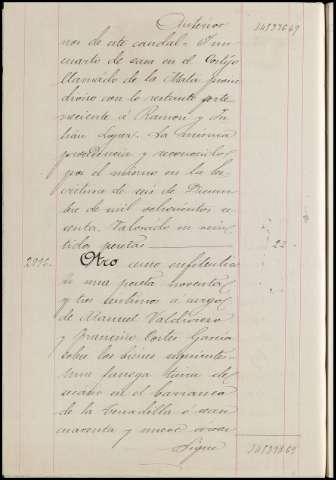 Anterior 34537 69
nos de este caudal. Y un
cuarto de casa en el Cortijo
llamado de la Marta proin
diviso con lo restante perte
neciente á Ramon y Ju
lian Lopez. La misma
procedencia y reconocido
por el mismo en la es
critura de seis de Diciem
bre de mil ochocientos
senta. Valorado en vein
tidos pesetas 22
Otro censo enfiteutico
de una peseta noventa
y tres centimos á cargo
de Manuel Valdivieso
y Francisco Cortes Garcia
sobre los bienes siguientes
una fanega tierra de
secano en el barranco
de la Granadilla ó sean
cuarenta y nueve areas
Sigue